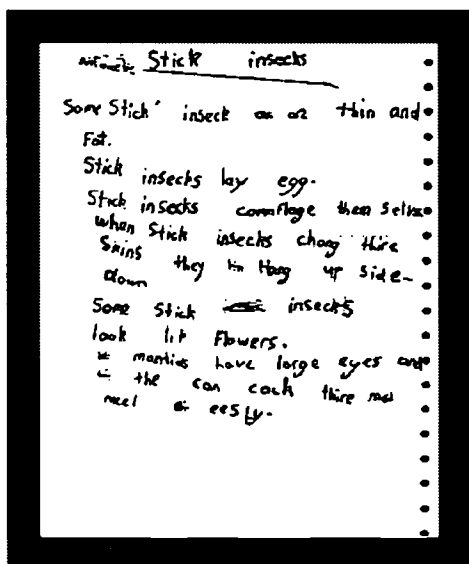 Stick insects
Some Stick insect thin and
Fat.
Stick insects lay egg.
Stick insects comflage them selves
when Stick insects chang thire
Skins they Hang up side-
down
Some Stick insects
look lik Flowers.
manties have large eyes and
the can cach thire
meel eesly.